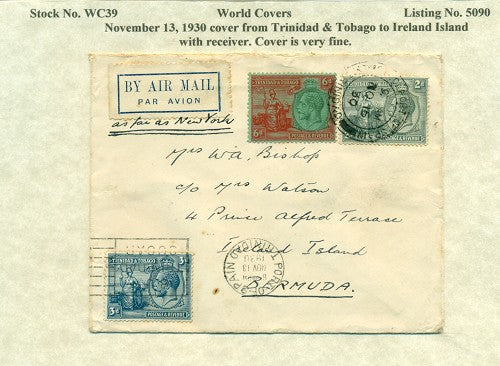 Stock No. WC39 World Covers Listing No. 5090
November 13, 1930 cover from Trinidad & Tobago to Ireland Island
with receiver. Cover is very fine.
BY AIR MAIL
PAR AVION
as far as New York
TRINIDAD & TOBAGO
6d
6d
POSTAGE & REVENUE
2d
POSTAGE & REVENUE
Mrs W.A. Bishop
c/o Mrs Watson
4 Prince Alfred Terrace
Ireland Island
BERMUDA.
TRINIDAD & TOBAGO
3d
3d
POSTAGE & REVENUE
PORT OF SPAIN TRINIDAD
NOV 13
1930